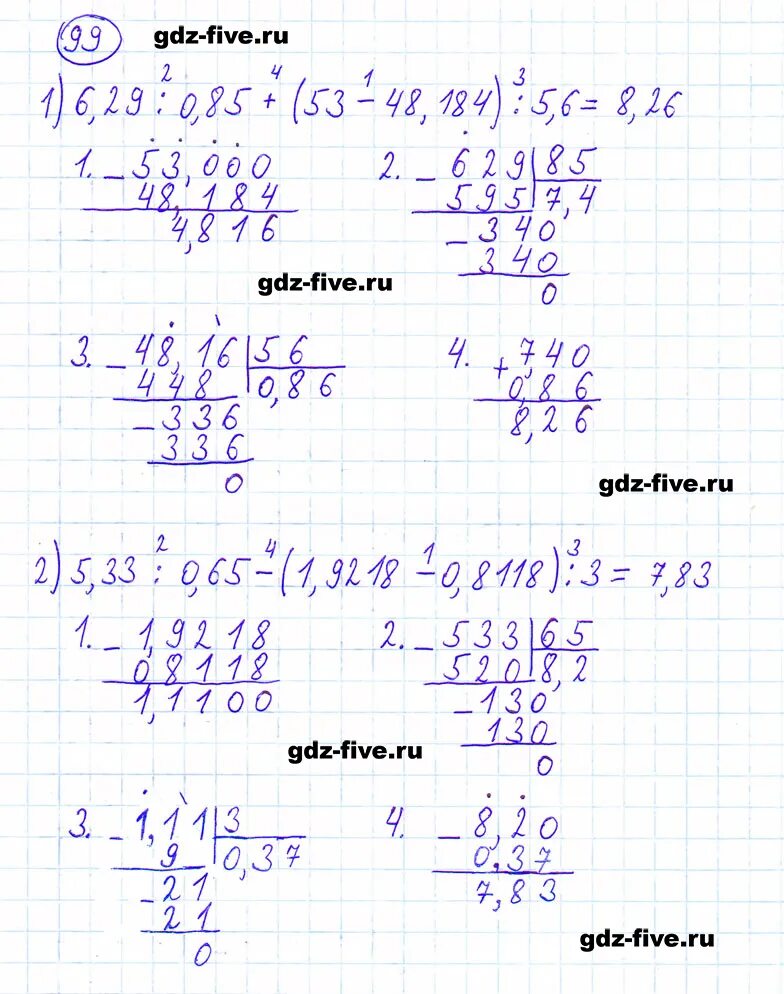 99 gdz-five.ru
2 4 1 3
1) 6,29 : 0,85 + (53 − 48,184) : 5,6 = 8,26
1. − 53,000
48,184
4,816
2. − 629 | 85
595 | 7,4
− 340
340
0
gdz-five.ru
3. − 48,16 | 56
448 | 0,86
− 336
336
0
4. + 7,40
0,86
8,26
gdz-five.ru
2 4 1 3
2) 5,33 : 0,65 − (1,9218 − 0,8118) : 3 = 7,83
1. − 1,9218
08118
1,1100
2. − 533 | 65
520 | 8,2
− 130
130
0
gdz-five.ru
3. − 1,11 | 3
9 | 0,37
− 21
21
0
4. − 8,20
0,37
7,83
gdz-five.ru